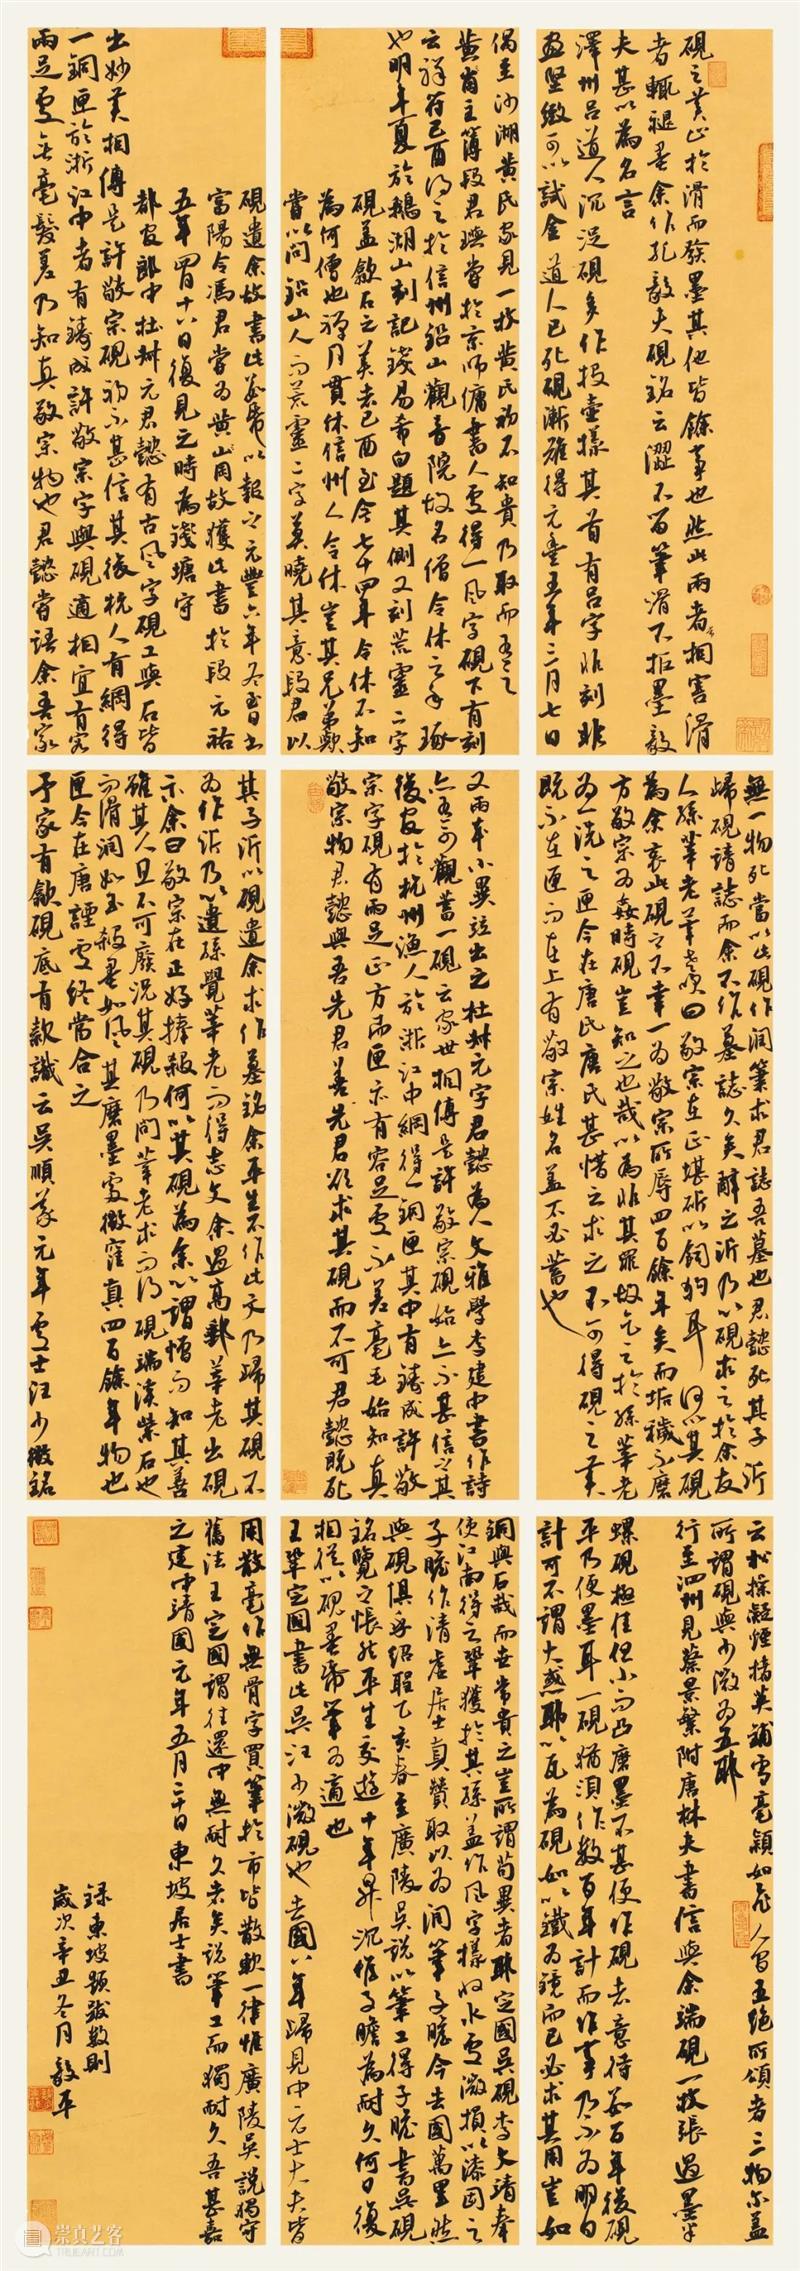 硯之美止於滑而發墨其他皆餘事也然此兩者相害滑
者輒褪墨余作孔毅夫硯銘云澀不留筆滑不拒墨毅
夫甚以為名言
澤州呂道人沉泥硯多作投壺樣其首有呂字非刻非
畫堅緻可以試金道人已死硯漸難得元豐五年三月七日
偶至沙湖黃氏家見一枚黃氏初不知貴乃取而有之
黃岡主簿段君璵嘗於京師傭書人處得一風字硯下有刻
云祥符己酉得之於信州鉛山觀音院故名僧令休之手琢
也明年夏於鵝湖山刻記錢易希白題其側又刻荒靈二字
硯蓋歙石之美者己酉至今七十四年令休不知
為何僧也禪月貫休信州人令休豈其兄弟歟
嘗以問鉛山人而荒靈二字莫曉其意段君以
硯遺余故書此數紙以報之元豐六年冬至日書
富陽令馮君嘗為黃岡故獲此書於段元祐
五年四月十八日復見之時為錢塘守
都官郎中杜叔元君懿有古風字硯工與石皆
出妙美相傳是許敬宗硯初不甚信其後杭人有網得
一銅匣於浙江中者有鑄成許敬宗字與硯適相宜有容
兩足處無毫髮差乃知真敬宗物也君懿嘗語余吾家
無一物死當以此硯作潤筆求君誌吾墓也君懿死其子沂
歸硯請誌而余不作墓誌久矣辭之沂乃以硯求之於余友
人孫莘老莘老笑曰敬宗在正堪斫以飼狗耳何以其硯
為余哀此硯之不幸一為敬宗所辱四百餘年矣而垢穢不磨
方敬宗為姦時硯豈知之也哉以為非其罪故乞之於孫莘老
為一洗之匣今在唐氏唐氏甚惜之求之不可得硯之美
既不在匣而在上有敬宗姓名蓋不必蓄也
又兩本小異竝出之杜叔元字君懿為人文雅學李建中書作詩
亦有可觀蓄一硯云家世相傳是許敬宗硯始亦不甚信之其
後官於杭州漁人於浙江中網得一銅匣其中有鑄成許敬
宗字硯有兩足正方而匣亦有容足處不差毫毛始知真
敬宗物君懿與吾先君善先君欲求其硯而不可君懿既死
其子沂以硯遺余求作墓銘余平生不作此文乃歸其硯不
為作沂乃以遺孫覺莘老而得志文余過高郵莘老出硯
示余曰敬宗在正好棒殺何以其硯為余以謂憎而知其善
雖其人且不可廢況其硯乃問莘老求而得硯端溪紫石也
而滑潤如玉殺墨如風其磨墨處微窪真四百餘年物也
匣今在唐諲處終當合之
予家有歙硯底有款識云吳順義元年處士汪少微銘
云松操凝煙楮英鋪雪毫穎如飛人間五絕所頌者三物爾蓋
所謂硯與少微為五耶
行至泗州見蔡景繁附唐林夫書信與余端硯一枚張遇墨半
螺硯極佳但小而凸磨墨不甚便作硯者意待數百年後硯
平乃便墨耳一硯猶須作數百年計而作事乃不為明日
計可不謂大惑耶以瓦為硯如以鐵為鏡而已必求其用豈如
銅與石哉而世常貴之豈所謂苟異者耶定國吳硯李文靖奉
使江南得之鞏獲於其孫蓋作風字樣收水處微損以漆固之
子瞻作清虛居士真贊取以為潤筆子瞻今去國萬里然
與硯俱乎紹聖乙亥春至廣陵吳說以筆工得子瞻書吳硯
銘覽之悵然平生交遊十年昇沉惟子瞻為耐久何日復
相從以硯墨紙筆為適也
王鞏定國書此吳汪少微硯也去國八年歸見中原士大夫皆
用散毫作無骨字買筆於市皆散軟一律惟廣陵吳說獨守
舊法王定國謂往還中無耐久者矣說筆工而獨耐久吾甚嘉
之建中靖國元年五月二十日東坡居士書
錄東坡題跋數則
歲次辛丑冬月毅平
崇真艺客
TRUEART.COM